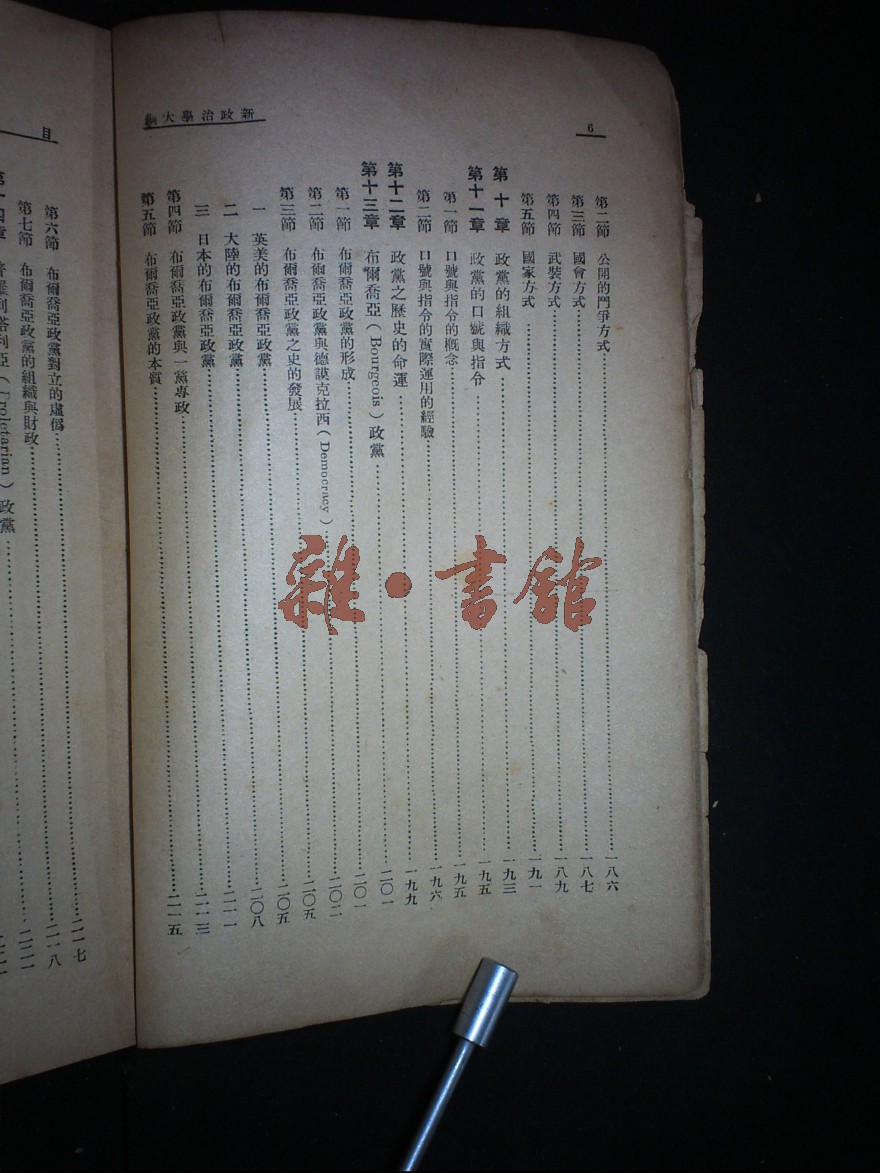 6
新政治學大綱
第二節 公開的鬥爭方式……一八六
第三節 國會方式……一八七
第四節 武裝方式……一八九
第五節 國家方式……一九一
第十章 政黨的組織方式……一九三
第十一章 政黨的口號與指令……一九五
第一節 口號與指令的概念……一九五
第二節 口號與指令的實際運用的經驗……一九六
第十二章 政黨之歷史的命運……一九九
第十三章 布爾喬亞(Bourgeois)政黨……二〇一
第一節 布爾喬亞政黨的形成……二〇一
第二節 布爾喬亞政黨與德謨克拉西(Democracy)……二〇二
第三節 布爾喬亞政黨之史的發展……二〇五
一 英美的布爾喬亞政黨……二〇五
二 大陸的布爾喬亞政黨……二〇八
三 日本的布爾喬亞政黨……二一一
第四節 布爾喬亞政黨與一黨專政……二一三
第五節 布爾喬亞政黨的本質……二一五
目
第六節 布爾喬亞政黨對立的虛僞……二一七
第七節 布爾喬亞政黨的組織與財政……二一八
第十四章 普羅列塔利亞(Proletarian)政黨……二二一
雜·書館